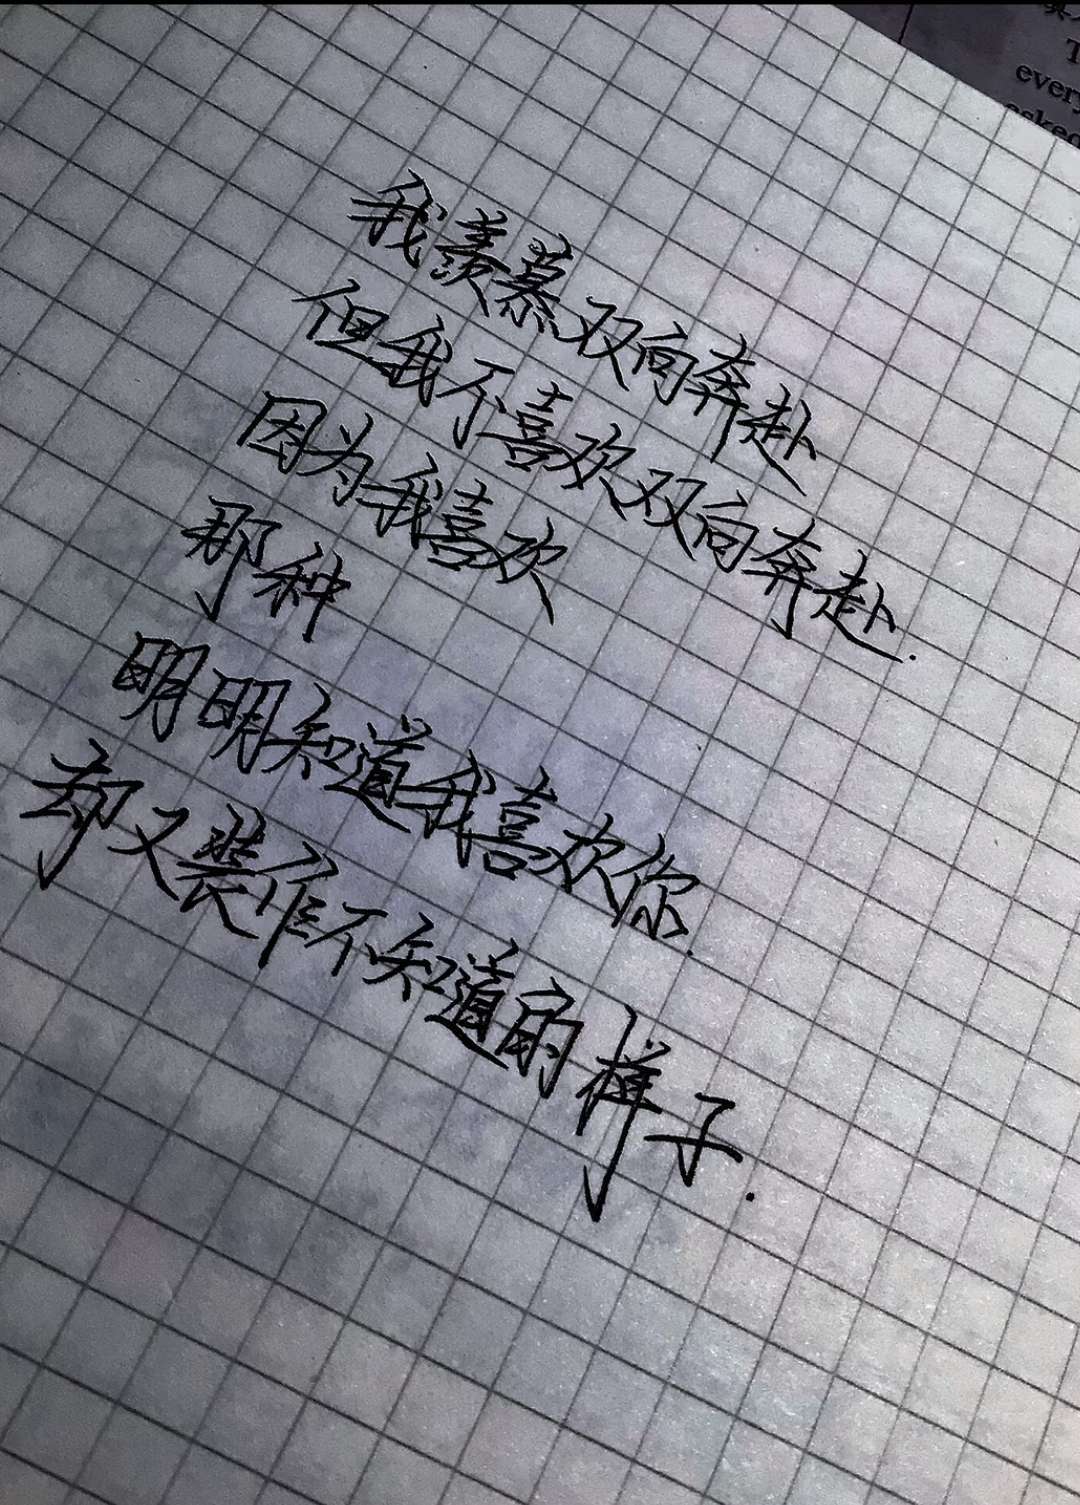 我羡慕双向奔赴
但我不喜欢双向奔赴.
因为我喜欢
那种
明明知道我喜欢你.
却又装作不知道的样子.
T
every
asked